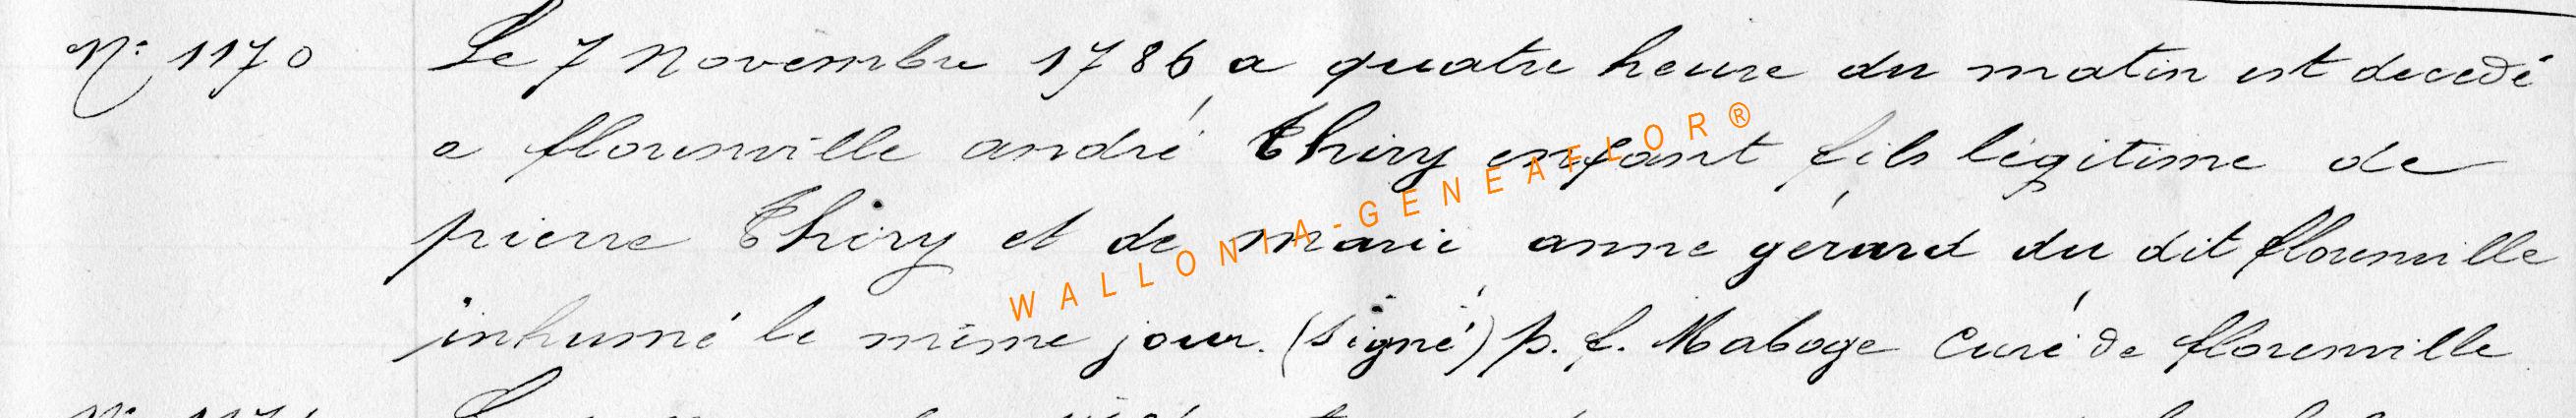 N° 1170 Le 7 Novembre 1786 a quatre heure du matin est decedé
a florenville andré Thiry enfant fils légitime de
pierre Thiry et de marie anne gérard du dit florenville
inhumé le même jour. (signé) p. f. Maboge Curé de florenville
WALLONIA-GENEAFLOR®